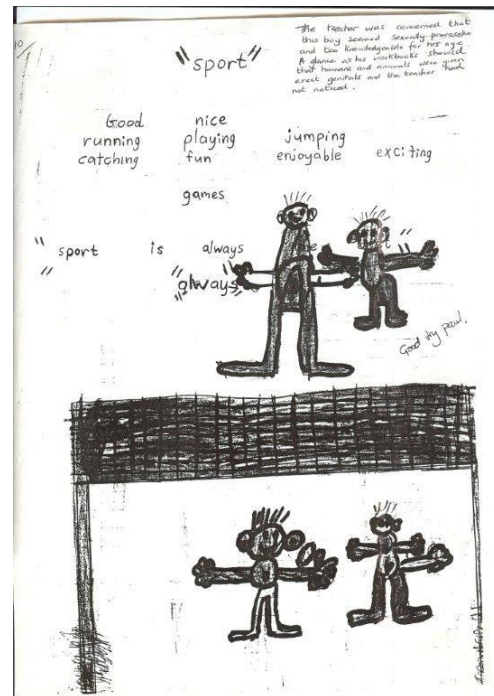 The teacher was concerned that
this boy seemed sexually precocious
and too knowledgeable for his age
A glance at his workbooks showed
that humans and animals were given
erect genitals and the teacher had
not noticed.
10
"sport"
Good nice
running playing jumping
catching fun enjoyable exciting
games
"sport is always "
"always"
Good try paul.